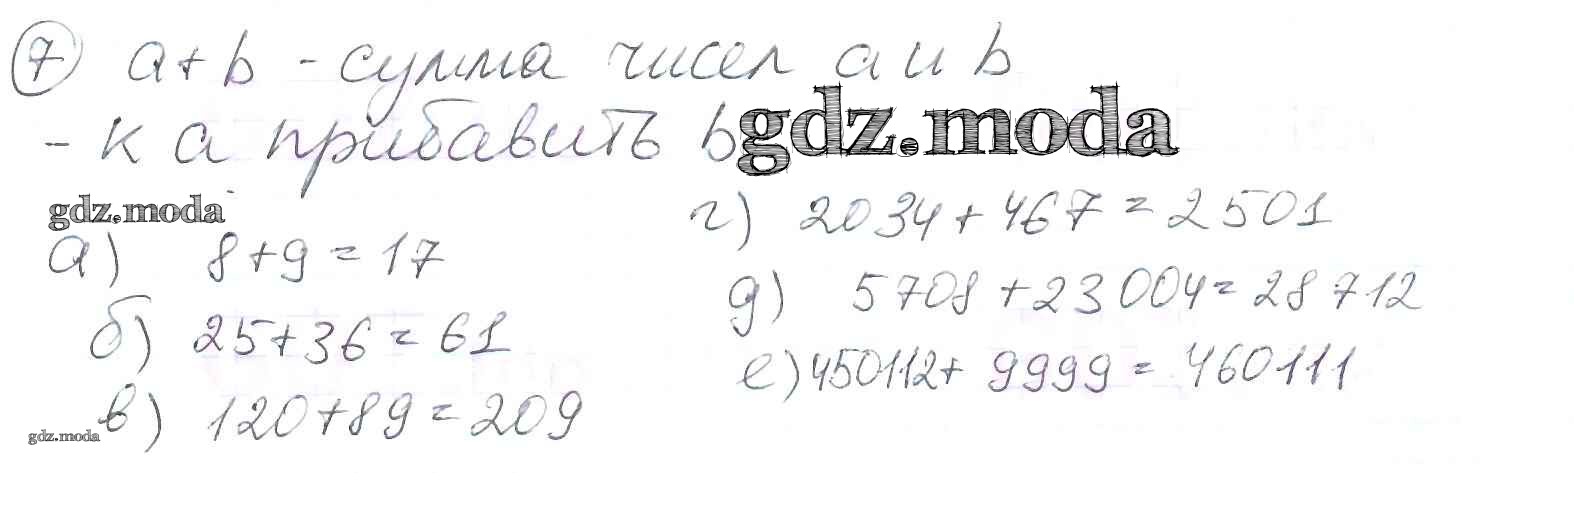 7 a+b - сумма чисел a и b
- к a прибавить b
gdz.moda
gdz.moda
а) 8+9=17
б) 25+36=61
в) 120+89=209
gdz.moda
г) 2034+467=2501
д) 5708+23004=28712
е) 450112+9999=460111